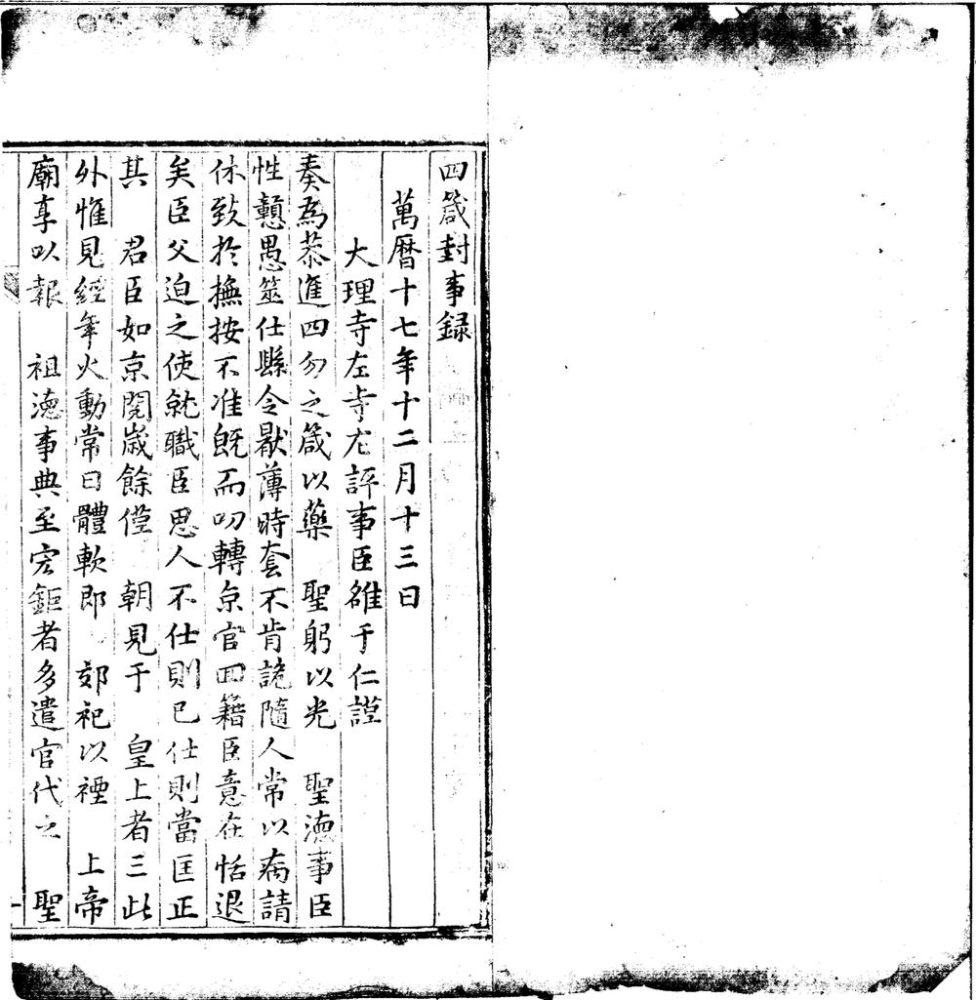 四箴封事録
萬曆十七年十二月十三日
大理寺左寺左評事臣雒于仁謹
奏為恭進四勿之箴以藥 聖躬以光 聖德事臣
性戇愚筮仕縣令厭薄時套不肯詭隨人常以病請
休致於撫按不准既而叨轉京官回籍臣意在恬退
矣臣父迫之使就職臣思人不仕則已仕則當匡正
其 君臣如京閱歲餘僅 朝見于 皇上者三此
外惟見經年火動常曰體軟即 郊祀以禋 上帝
廟享以報 祖德事典至宏鉅者多遣官代之 聖